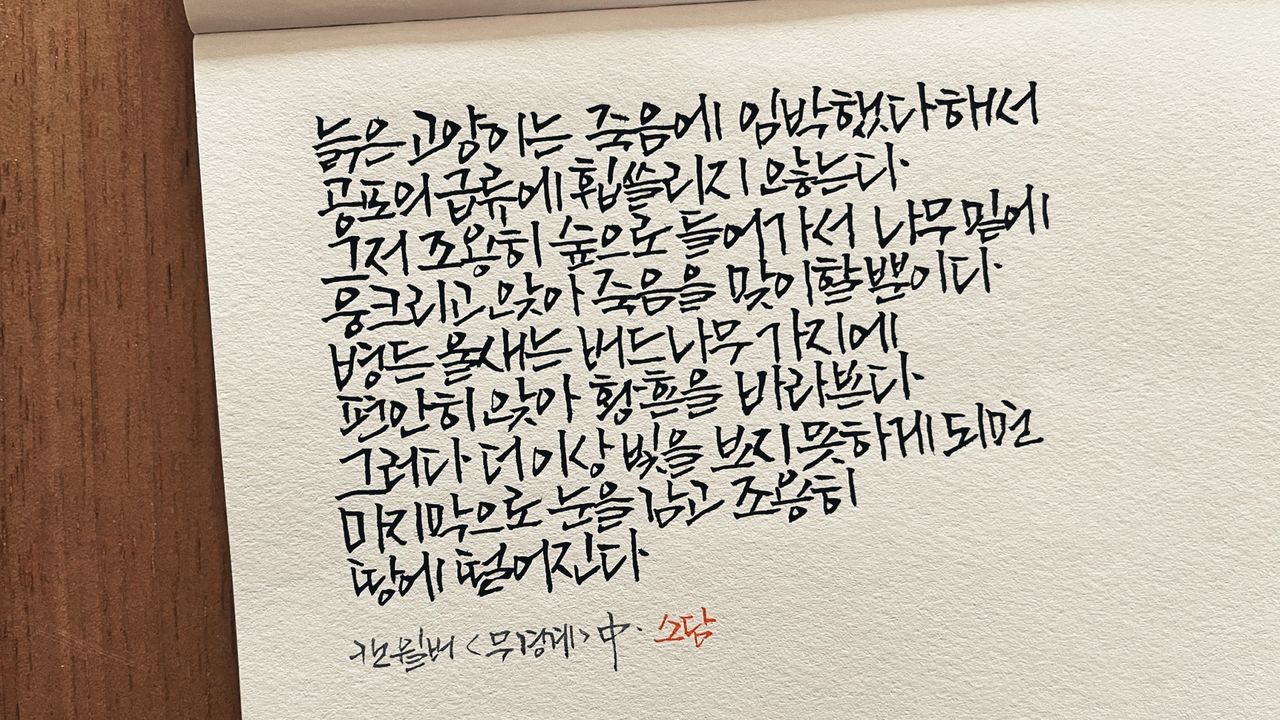 늙은 고양이는 죽음에 임박했다 해서
공포의 급류에 휩쓸리지 않는다.
그저 조용히 숲으로 들어가서 나무 밑에
웅크리고 앉아 죽음을 맞이할 뿐이다.
병든 울새는 버드나무 가지에
편안히 앉아 황혼을 바라본다.
그러다 더 이상 빛을 보지 못하게 되면
마지막으로 눈을 감고 조용히
땅에 떨어진다.
켄 윌버 <무경계> 中. 소담